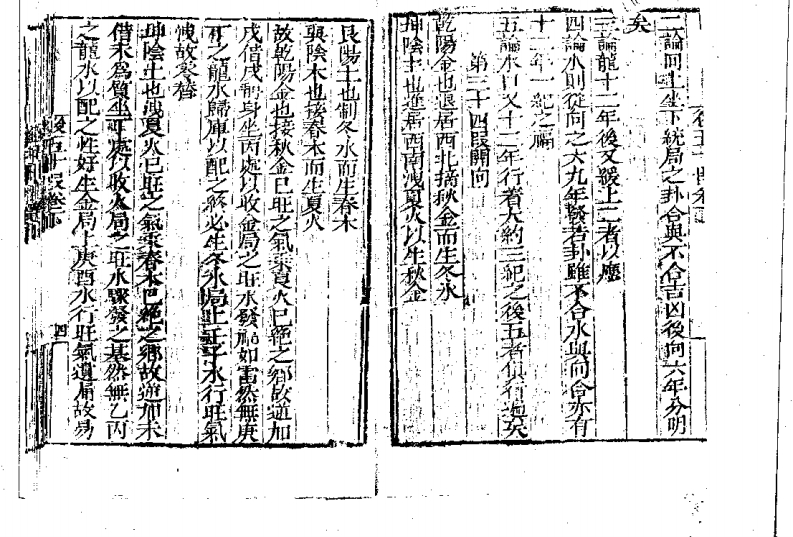 二論向上坐下統局之卦合與不合吉凶後向六年分明
矣
三論龍十二年後又緩上二者以應
四論水則從向之六九年發若卦雖不合水與向合亦有
十二年一紀之福
五論水口又十二年行者大約三紀之後五者俱行與矣
第三十四叚開向
乾陽金也退居西北接秋金而生冬水
坤陰土也進居西南洩夏火以生秋金
艮陽土也制冬水而生春木
巽陰木也接春木而生夏火
故乾陽金也接秋金已旺之氣乘夏火已絶之鄉故道加
戌借戌身坐丙處以收金局之旺水發福如雷然無庚
丁之龍水歸庫以配之終必生冬水局止壬子水行旺氣
洩故零替
坤陰土也洩夏火已旺之氣乘春木已絶之鄉故道加未
借未爲質坐處以收火局之旺水驟發之甚然無乙丙
之龍水以配之性好生金局上庚酉水行旺氣道局故易
四